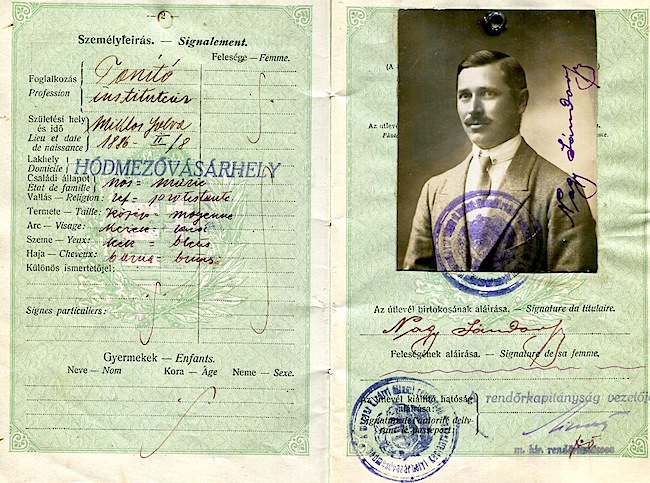 2
Személyleirás. — Signalement.
Felesége — Femme.
Foglalkozás
Profession
Tanító
instituteur
Születési hely
és idő
Lieu et date
de naissance
Miklos
1886 II/8
Lakhely
Domicile
HÓDMEZŐVÁSÁRHELY
Családi állapot
Etat de famille
nős = marié
Vallás — Religion: ref = protestante
Termete — Taille: közép = moyenne
Arc — Visage:
Szeme — Yeux: kék = bleus
Haja — Cheveux: barna = bruns
Különös ismertetőjel:
Signes particuliers:
Gyermekek — Enfants.
Neve — Nom Kora — Âge Neme — Sexe.
(A
Az útlev
Nagy Sándor
Az útlevél birtokosának aláirása. — Signature du titulaire.
Nagy Sándor
Feleségének aláirása. — Signature de sa femme.
Az útlevél kiállító hatóság
aláirása:
Signature de l'autorité deliv-
rant le passeport:
rendőrkapitányság vezetője
m. kir.